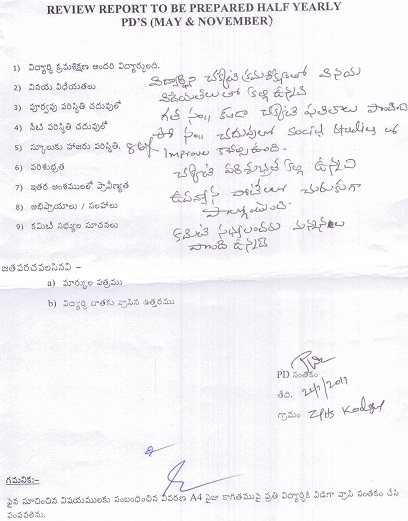 REVIEW REPORT TO BE PREPARED HALF YEARLY
PD'S (MAY & NOVEMBER)
1) విద్యార్ధి క్రమశిక్షణ అందరి విద్యార్ధులది.
2) వినయ విధేయతలు
3) పూర్వపు పరిస్థితి చదువులో
4) నేటి పరిస్థితి చదువులో
5) స్కూలుకు హాజరు పరిస్థితి.
6) పరిశుభ్రత
7) ఇతర అంశములలో ప్రావీణ్యత
8) అభిప్రాయాలు / సలహాలు
9) కమిటి సభ్యుల సూచనలు
విద్యార్థిని చక్కటి క్రమశిక్షణతో వినయ
విధేయతలతో కల్గి ఉన్నది
గత సం॥ కూడా చక్కటి ఫలితాలు పొందినది
ఈ సం॥ చదువులో social studies లో
Improve కావల్సి ఉంది.
చక్కటి పరిశుభ్రత కల్గి ఉన్నది
పోటీలలో చురుకుగా
పాల్గొంటుంది.
కమిటి సభ్యులందరు మన్ననలు
పొంది ఉన్నది
జతపరచవలసినవి –
a) మార్కుల పత్రము
b) విద్యార్థి దాతకు వ్రాసిన ఉత్తరము
PD సంతకం
తేది.
గ్రామం ZPHS
గమనిక:-
పైన సూచించిన విషయములకు సంబంధించిన వివరణ A4 సైజు కాగితముపై ప్రతి విద్యార్థికి విడిగా వ్రాసి సంతకం చేసి
పంపవలెను.